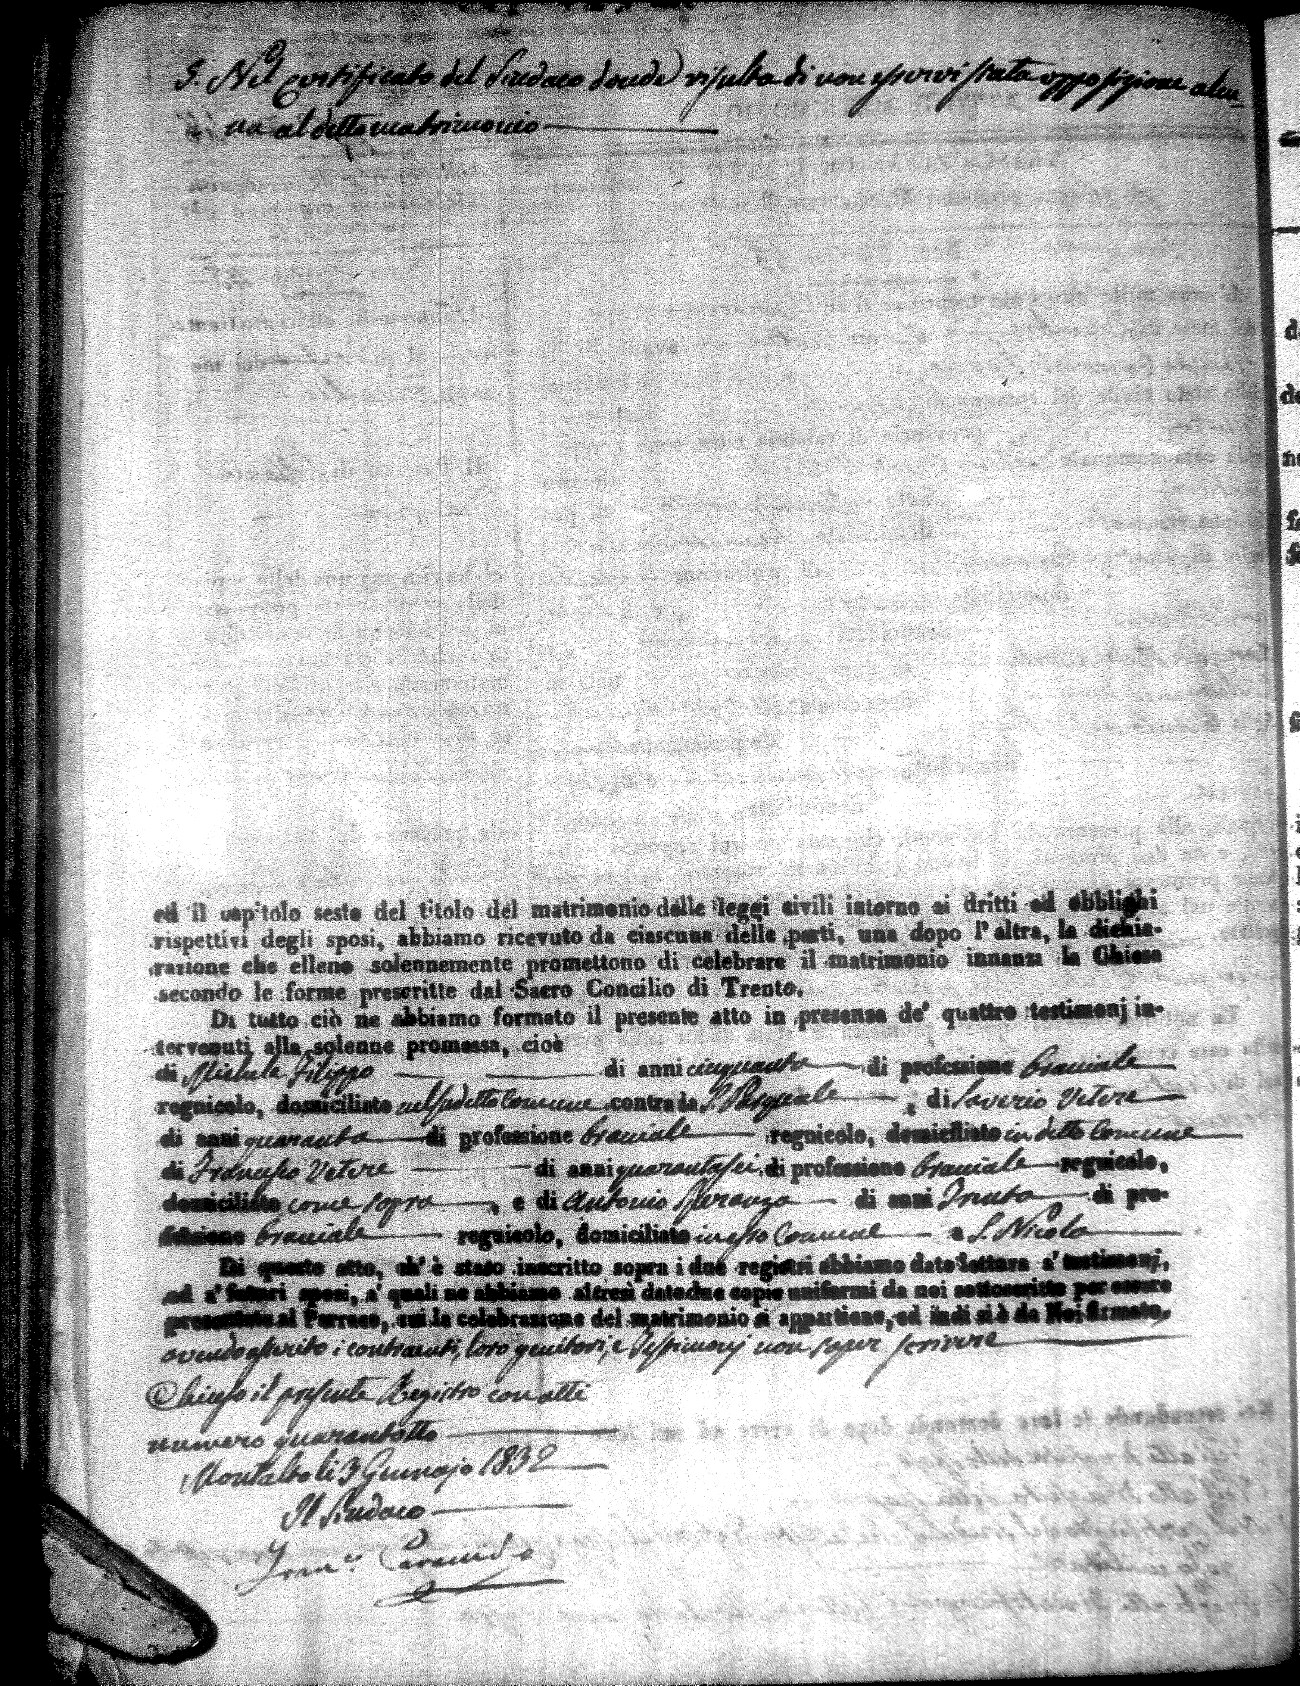 5. Nel certificato del Sindaco donde risulta di non esservi stata opposizione alcu-
na al detto matrimonio
ed il capitolo sesto del titolo del matrimonio delle leggi civili intorno ai dritti ed obblighi
rispettivi degli sposi, abbiamo ricevuto da ciascuna delle parti, una dopo l'altra, la dichia-
razione che elleno solennemente promettono di celebrare il matrimonio innanzi la Chiesa
secondo le forme prescritte dal Sacro Concilio di Trento.
Di tutto ciò ne abbiamo formato il presente atto in presenza de' quattro testimonj in-
tervenuti alla solenne promessa, cioè
di Michele Filippo di anni cinquanta di professione braciale
regnicolo, domiciliato nel sudetto Comune contrada S. Pasquale, di Saverio Vetere
di anni quaranta di professione braciale regnicolo, domiciliato in detto Comune
di Francesco Vetere di anni quarantasei di professione braciale regnicolo,
domiciliato come sopra, e di Antonio Speranza di anni Trenta di pro-
fessione braciale regnicolo, domiciliato in esso Comune a S. Nicola
Di questo atto, ch'è stato inscritto sopra i due registri abbiamo dato lettura a' testimonj,
ed a' futuri sposi, a' quali ne abbiamo altresì dato due copie uniformi da noi sottoscritte per essere
presentate al Parroco, cui la celebrazione del matrimonio si appartiene, ed indi si è da Noi firmato,
avendo asserito i contraenti, loro genitori, e Testimonj non saper scrivere
Chiuso il presente Registro con atti
numero quarantotto
Montalto li 3 Gennajo 1832
Il Sindaco